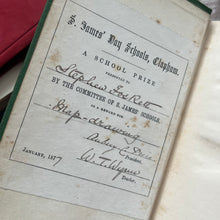 S. James' Day Schools, Clapham.
A SCHOOL PRIZE
PRESENTED TO
Stephen Foskett
BY THE COMMITTEE OF S. JAMES' SCHOOLS,
AS A REWARD FOR
Map-drawing
President.
W. T. Wynn
JANUARY, 1877